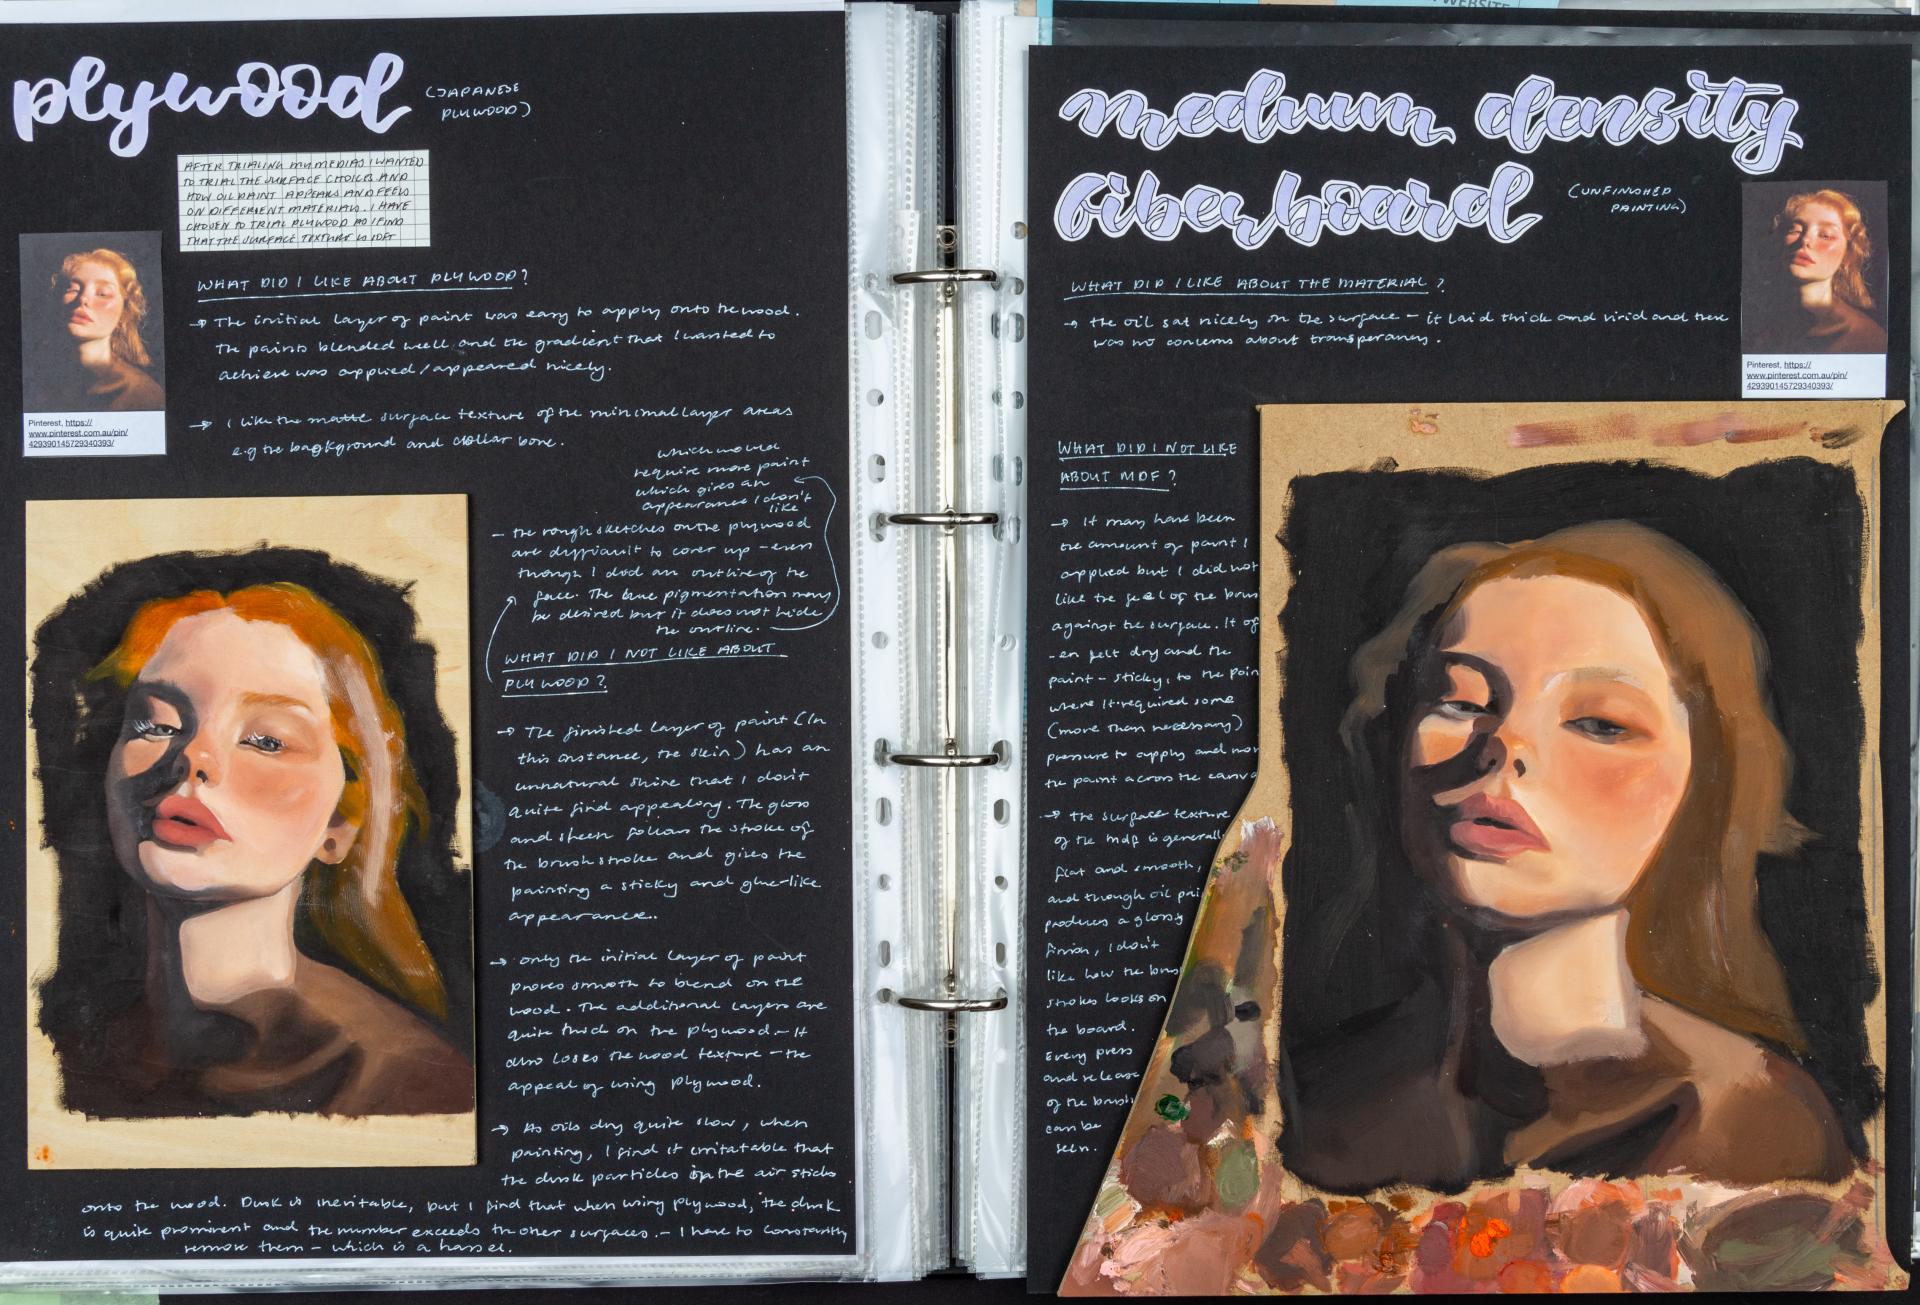 WEBSITE
plywood
(JAPANESE
PLYWOOD)
AFTER TRIALING MY MEDIAS I WANTED
TO TRIAL THE SURFACE CHOICES AND
HOW OIL PAINT APPEARS AND FEELS
ON DIFFERENT MATERIALS. I HAVE
CHOSEN TO TRIAL PLYWOOD AS I FIND
THAT THE SURFACE TEXTURE IS SOFT
Pinterest, https://
www.pinterest.com.au/pin/
429390145729340393/
WHAT DID I LIKE ABOUT PLYWOOD?
→ The initial layer of paint was easy to apply onto the wood.
The paints blended well and the gradient that I wanted to
achieve was applied/appeared nicely.
→ I like the matte surface texture of the minimal layer areas
e.g the background and collar bone.
which would
require more paint
which gives an
appearance I don't
like
- the rough sketches on the plywood
are difficult to cover up - even
though I did an outline of the
face. The pigmentation may
be desired but it does not hide
the outline.
WHAT DID I NOT LIKE ABOUT
PLYWOOD?
→ The finished layer of paint (In
this instance, the skin) has an
unnatural shine that I don't
quite find appealing. The gloss
and sheen follows the stroke of
the brush stroke and gives the
painting a sticky and glue-like
appearance.
→ only the initial layer of paint
proves smooth to blend on the
wood. The additional layers are
quite thick on the plywood. - It
also loses the wood texture - the
appeal of using plywood.
→ As oils dry quite slow, when
painting, I find it irritatable that
the dusk particles in the air sticks
onto the wood. Dusk is inevitable, but I find that when using plywood, the dusk
is quite prominent and the number exceeds the other surfaces. - I have to constantly
remove them - which is a hassel.
medium density
fiberboard
(UNFINISHED
PAINTING)
Pinterest, https://
www.pinterest.com.au/pin/
429390145729340393/
WHAT DID I LIKE ABOUT THE MATERIAL?
→ the oil sat nicely on the surface - it laid thick and vivid and there
was no concerns about transperancy.
WHAT DID I NOT LIKE
ABOUT MDF?
→ It may have been
the amount of paint I
applied but I did not
like the feel of the brus
against the surface. It of
-en felt dry and the
paint - sticky, to the poin
where it required some
(more than necessary)
pressure to apply and mov
the paint across the canva
→ the surface texture
of the mdf is generall
flat and smooth,
and though oil pai
produces a glossy
finish, I don't
like how the brus
strokes looks on
the board.
Every press
and release
of the brush
can be
seen.